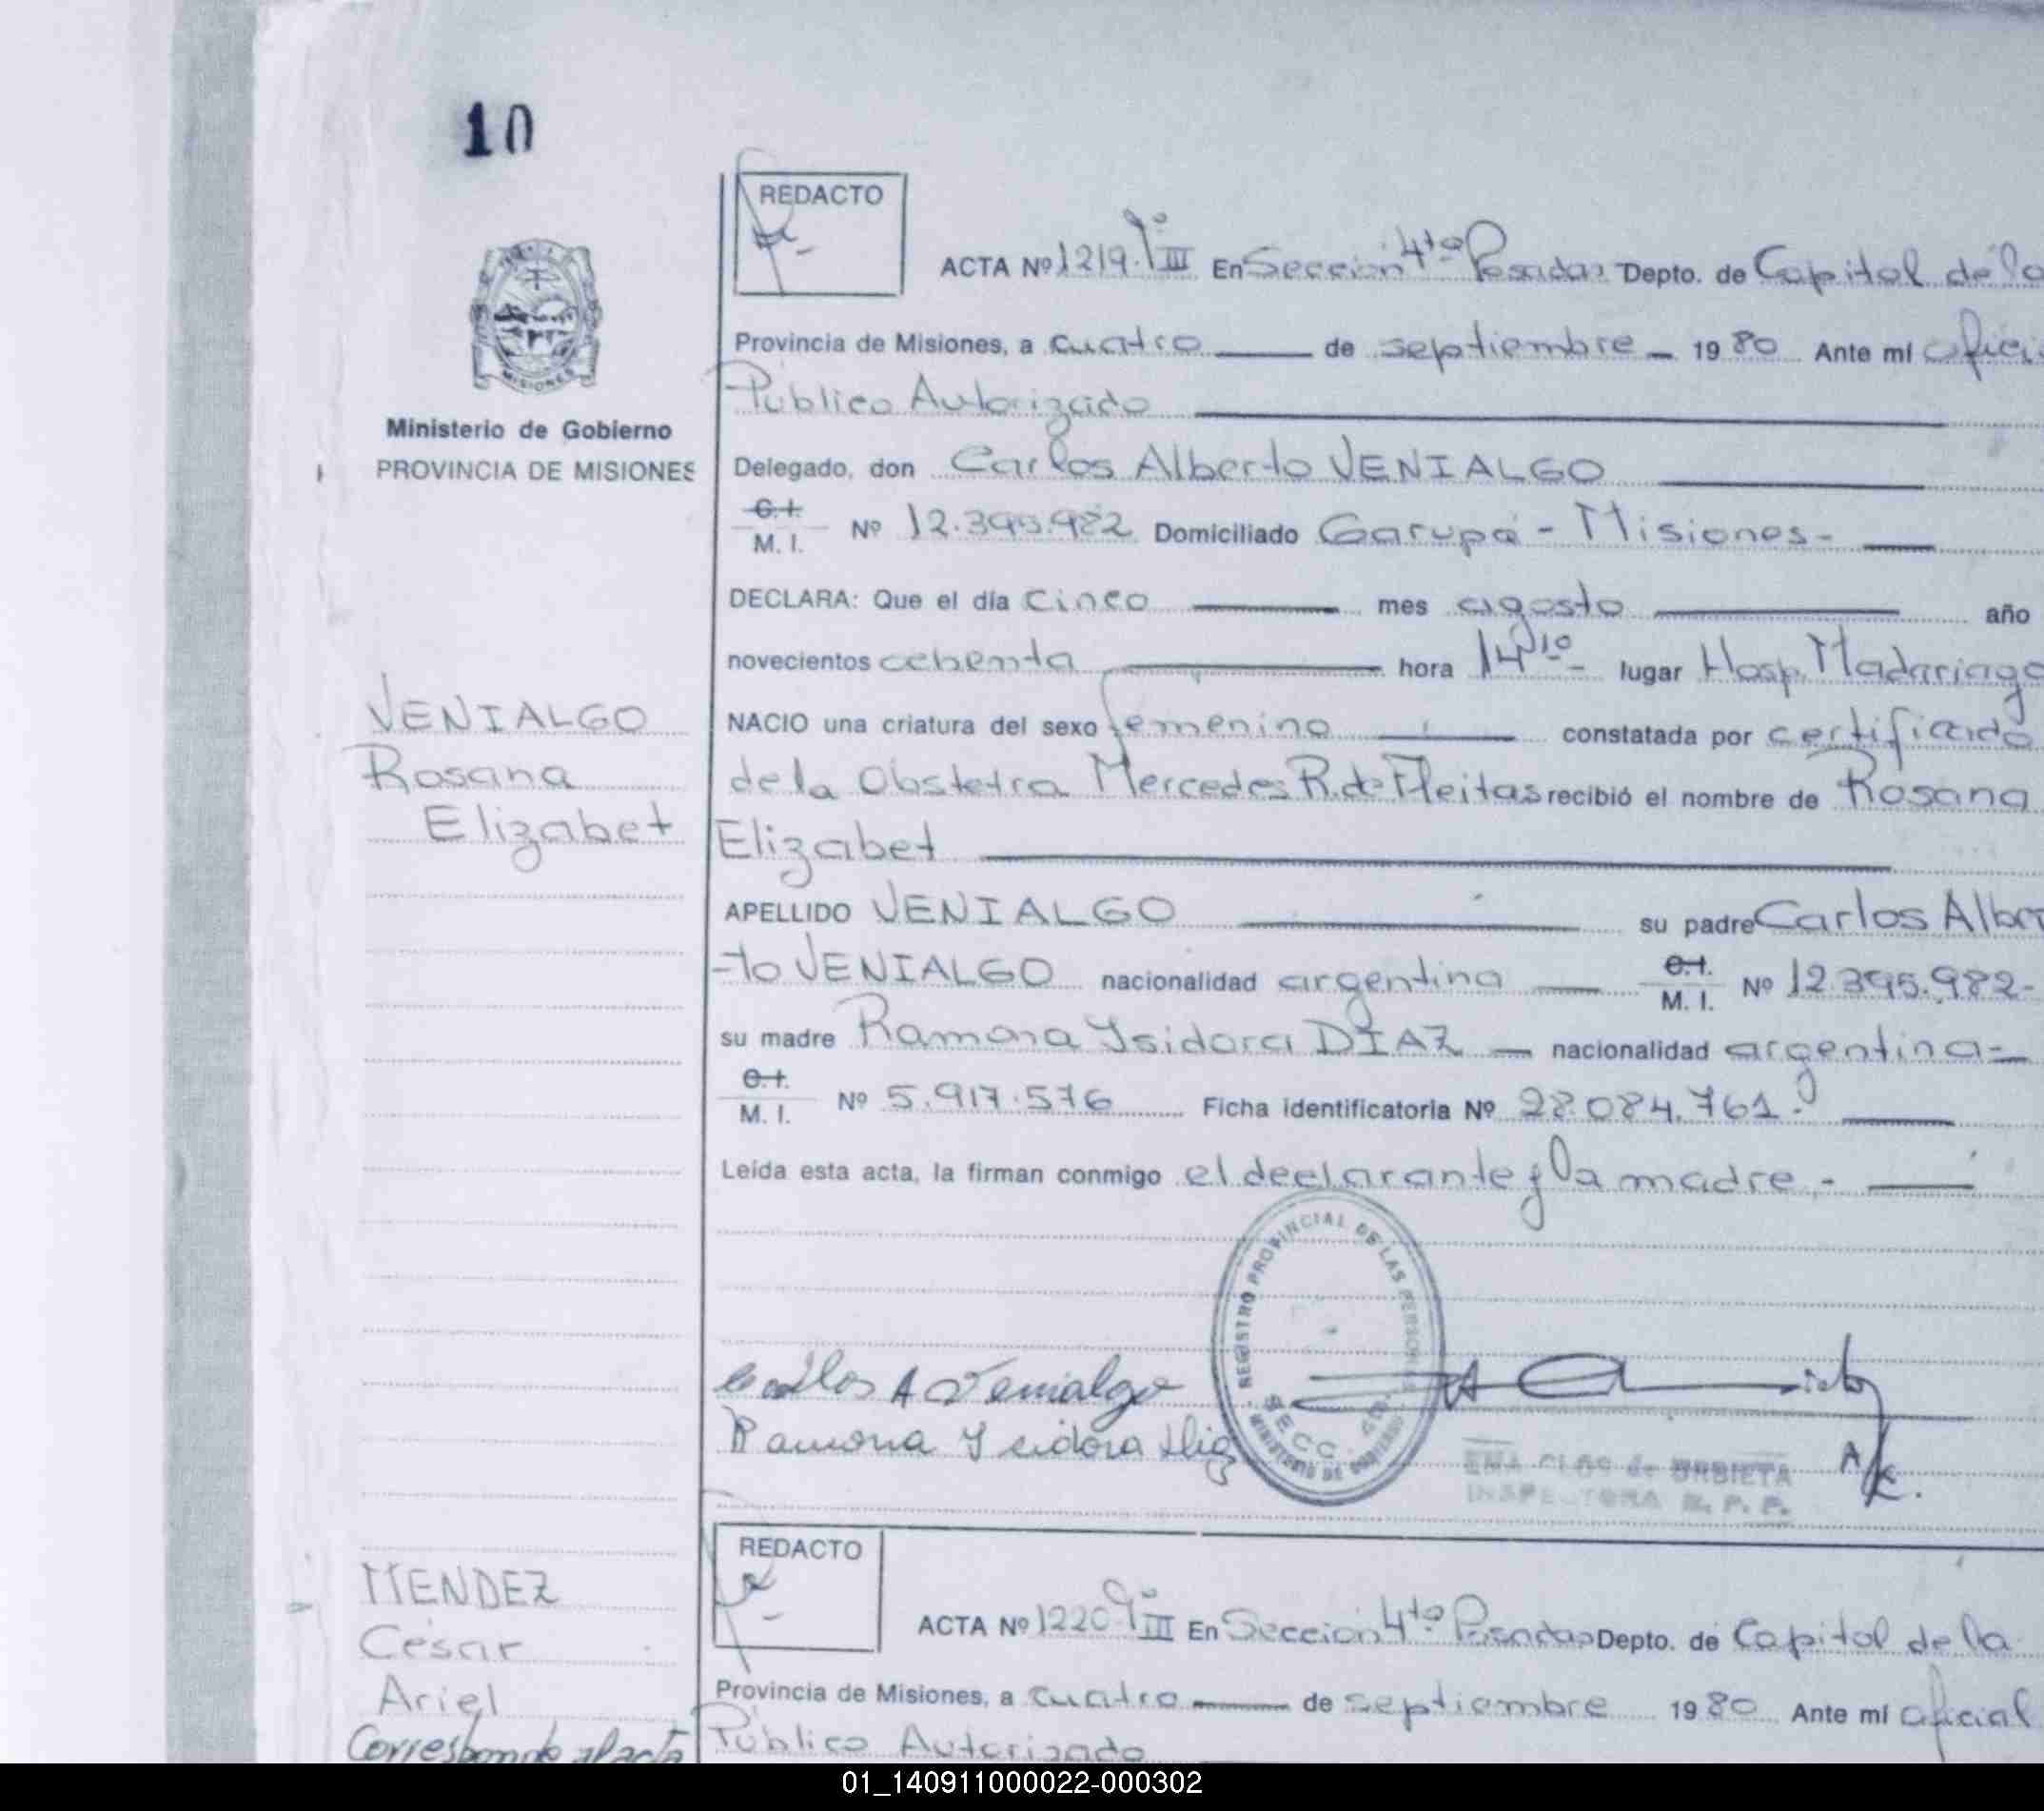 10
REDACTO
ACTA Nº 1219. Tº III En Sección 4ta Posadas Depto. de Capital de la
Provincia de Misiones, a cuatro de septiembre - 19 80 Ante mí
Público Autorizado
MISIONES
Ministerio de Gobierno
PROVINCIA DE MISIONES
Delegado, don Carlos Alberto VENIALGO
C.I.
M. I. Nº 12.395.982 Domiciliado Garupá - Misiones-
DECLARA: Que el día cinco mes agosto año
novecientos ochenta hora 14 10 - lugar Hosp. Madariaga
VENIALGO
Rosana
Elizabet
NACIO una criatura del sexo femenino constatada por certificado
de la Obstetra Mercedes R. de Fleitas recibió el nombre de Rosana
Elizabet
APELLIDO VENIALGO su padre Carlos Alber
-to VENIALGO nacionalidad argentina C.I. M. I. Nº 12.395.982-
su madre Ramona Ysidora DIAZ - nacionalidad argentina-
C.I.
M. I. Nº 5.917.576 Ficha identificatoria Nº 28.084.761.
Leída esta acta, la firman conmigo el declarante y la madre.-
REGISTRO PROVINCIAL DE LAS PERSONAS
SECC. 4ta
MINISTERIO DE GOBIERNO
Carlos A Venialgo
Ramona Ysidora
de URBIETA
INSPECTORA R. P. P.
MENDEZ
César
Ariel
Corresponde al acta
REDACTO
ACTA Nº 1220 Tº III En Sección 4ta Posadas Depto. de Capital de la
Provincia de Misiones, a cuatro de septiembre 19 80 Ante mí oficial
Público Autorizado
01_140911000022-000302